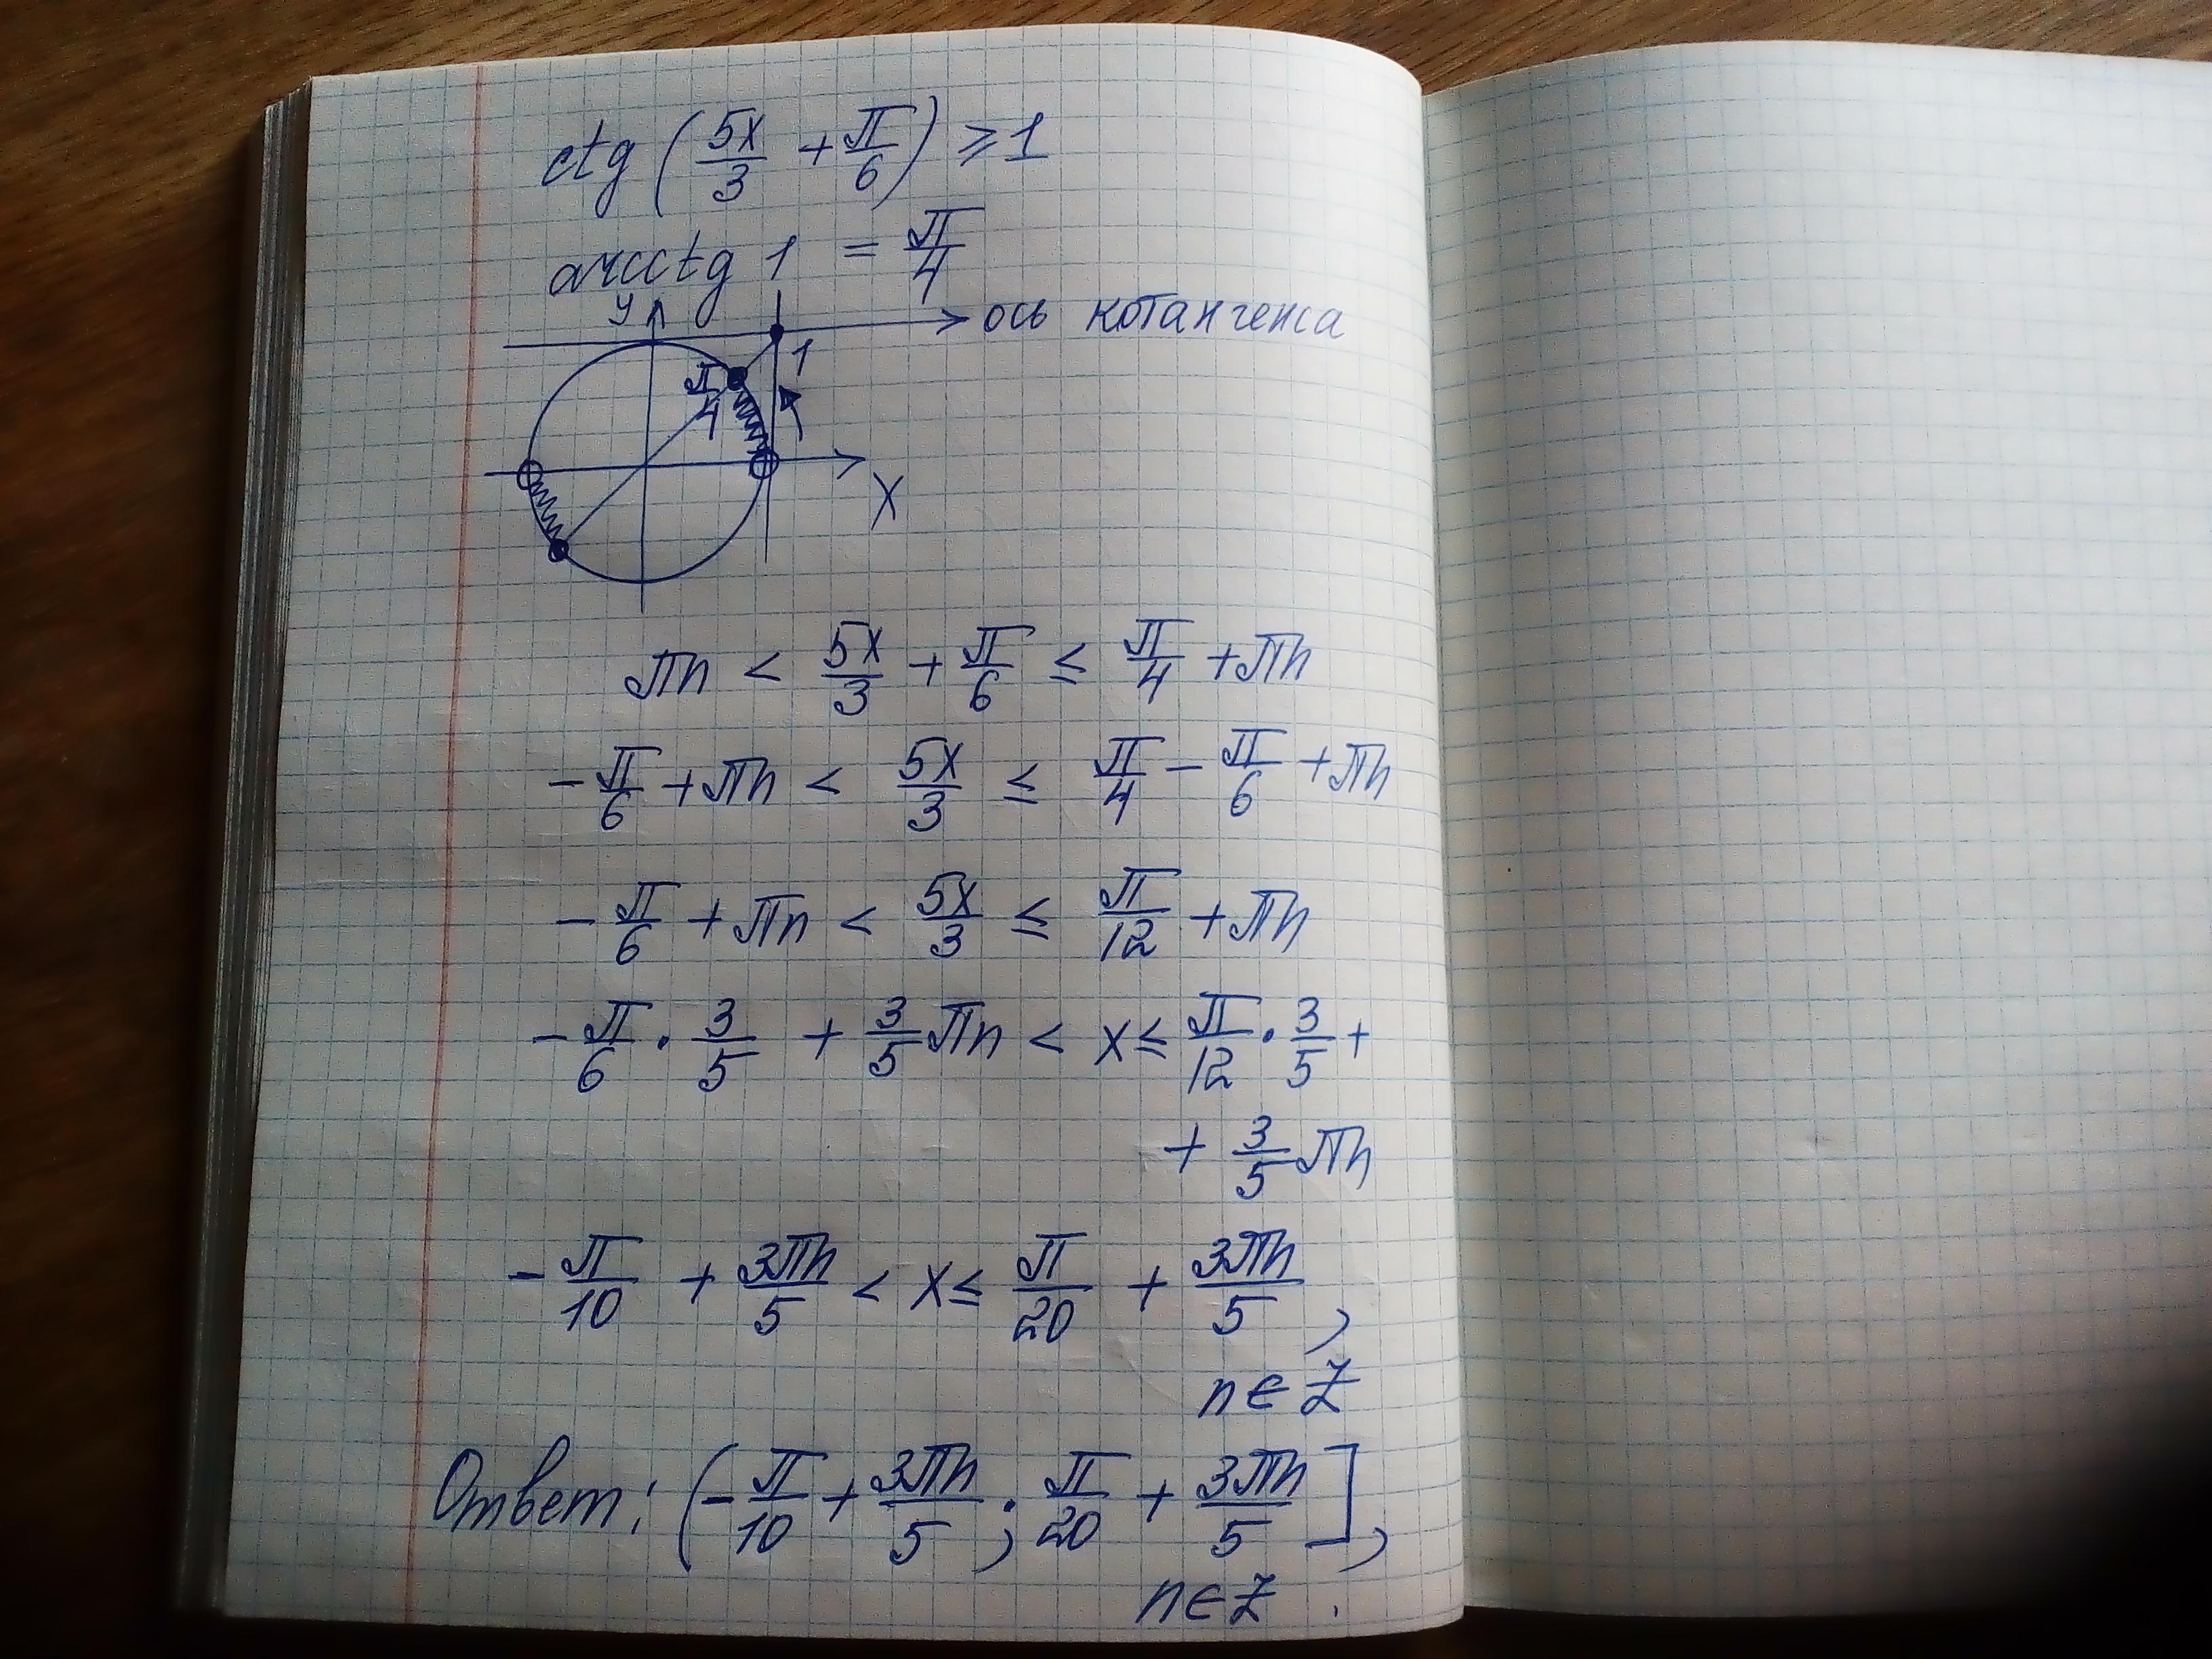 ctg (5x/3 + π/6) ≥ 1
arcctg 1 = π/4
y
ось котангенса
1
π/4
x
πn < 5x/3 + π/6 ≤ π/4 + πn
-π/6 + πn < 5x/3 ≤ π/4 - π/6 + πn
-π/6 + πn < 5x/3 ≤ π/12 + πn
-π/6 · 3/5 + 3/5 πn < x ≤ π/12 · 3/5 +
+ 3/5 πn
-π/10 + 3πn/5 < x ≤ π/20 + 3πn/5,
n∈Z
Ответ: (-π/10 + 3πn/5; π/20 + 3πn/5],
n∈Z.